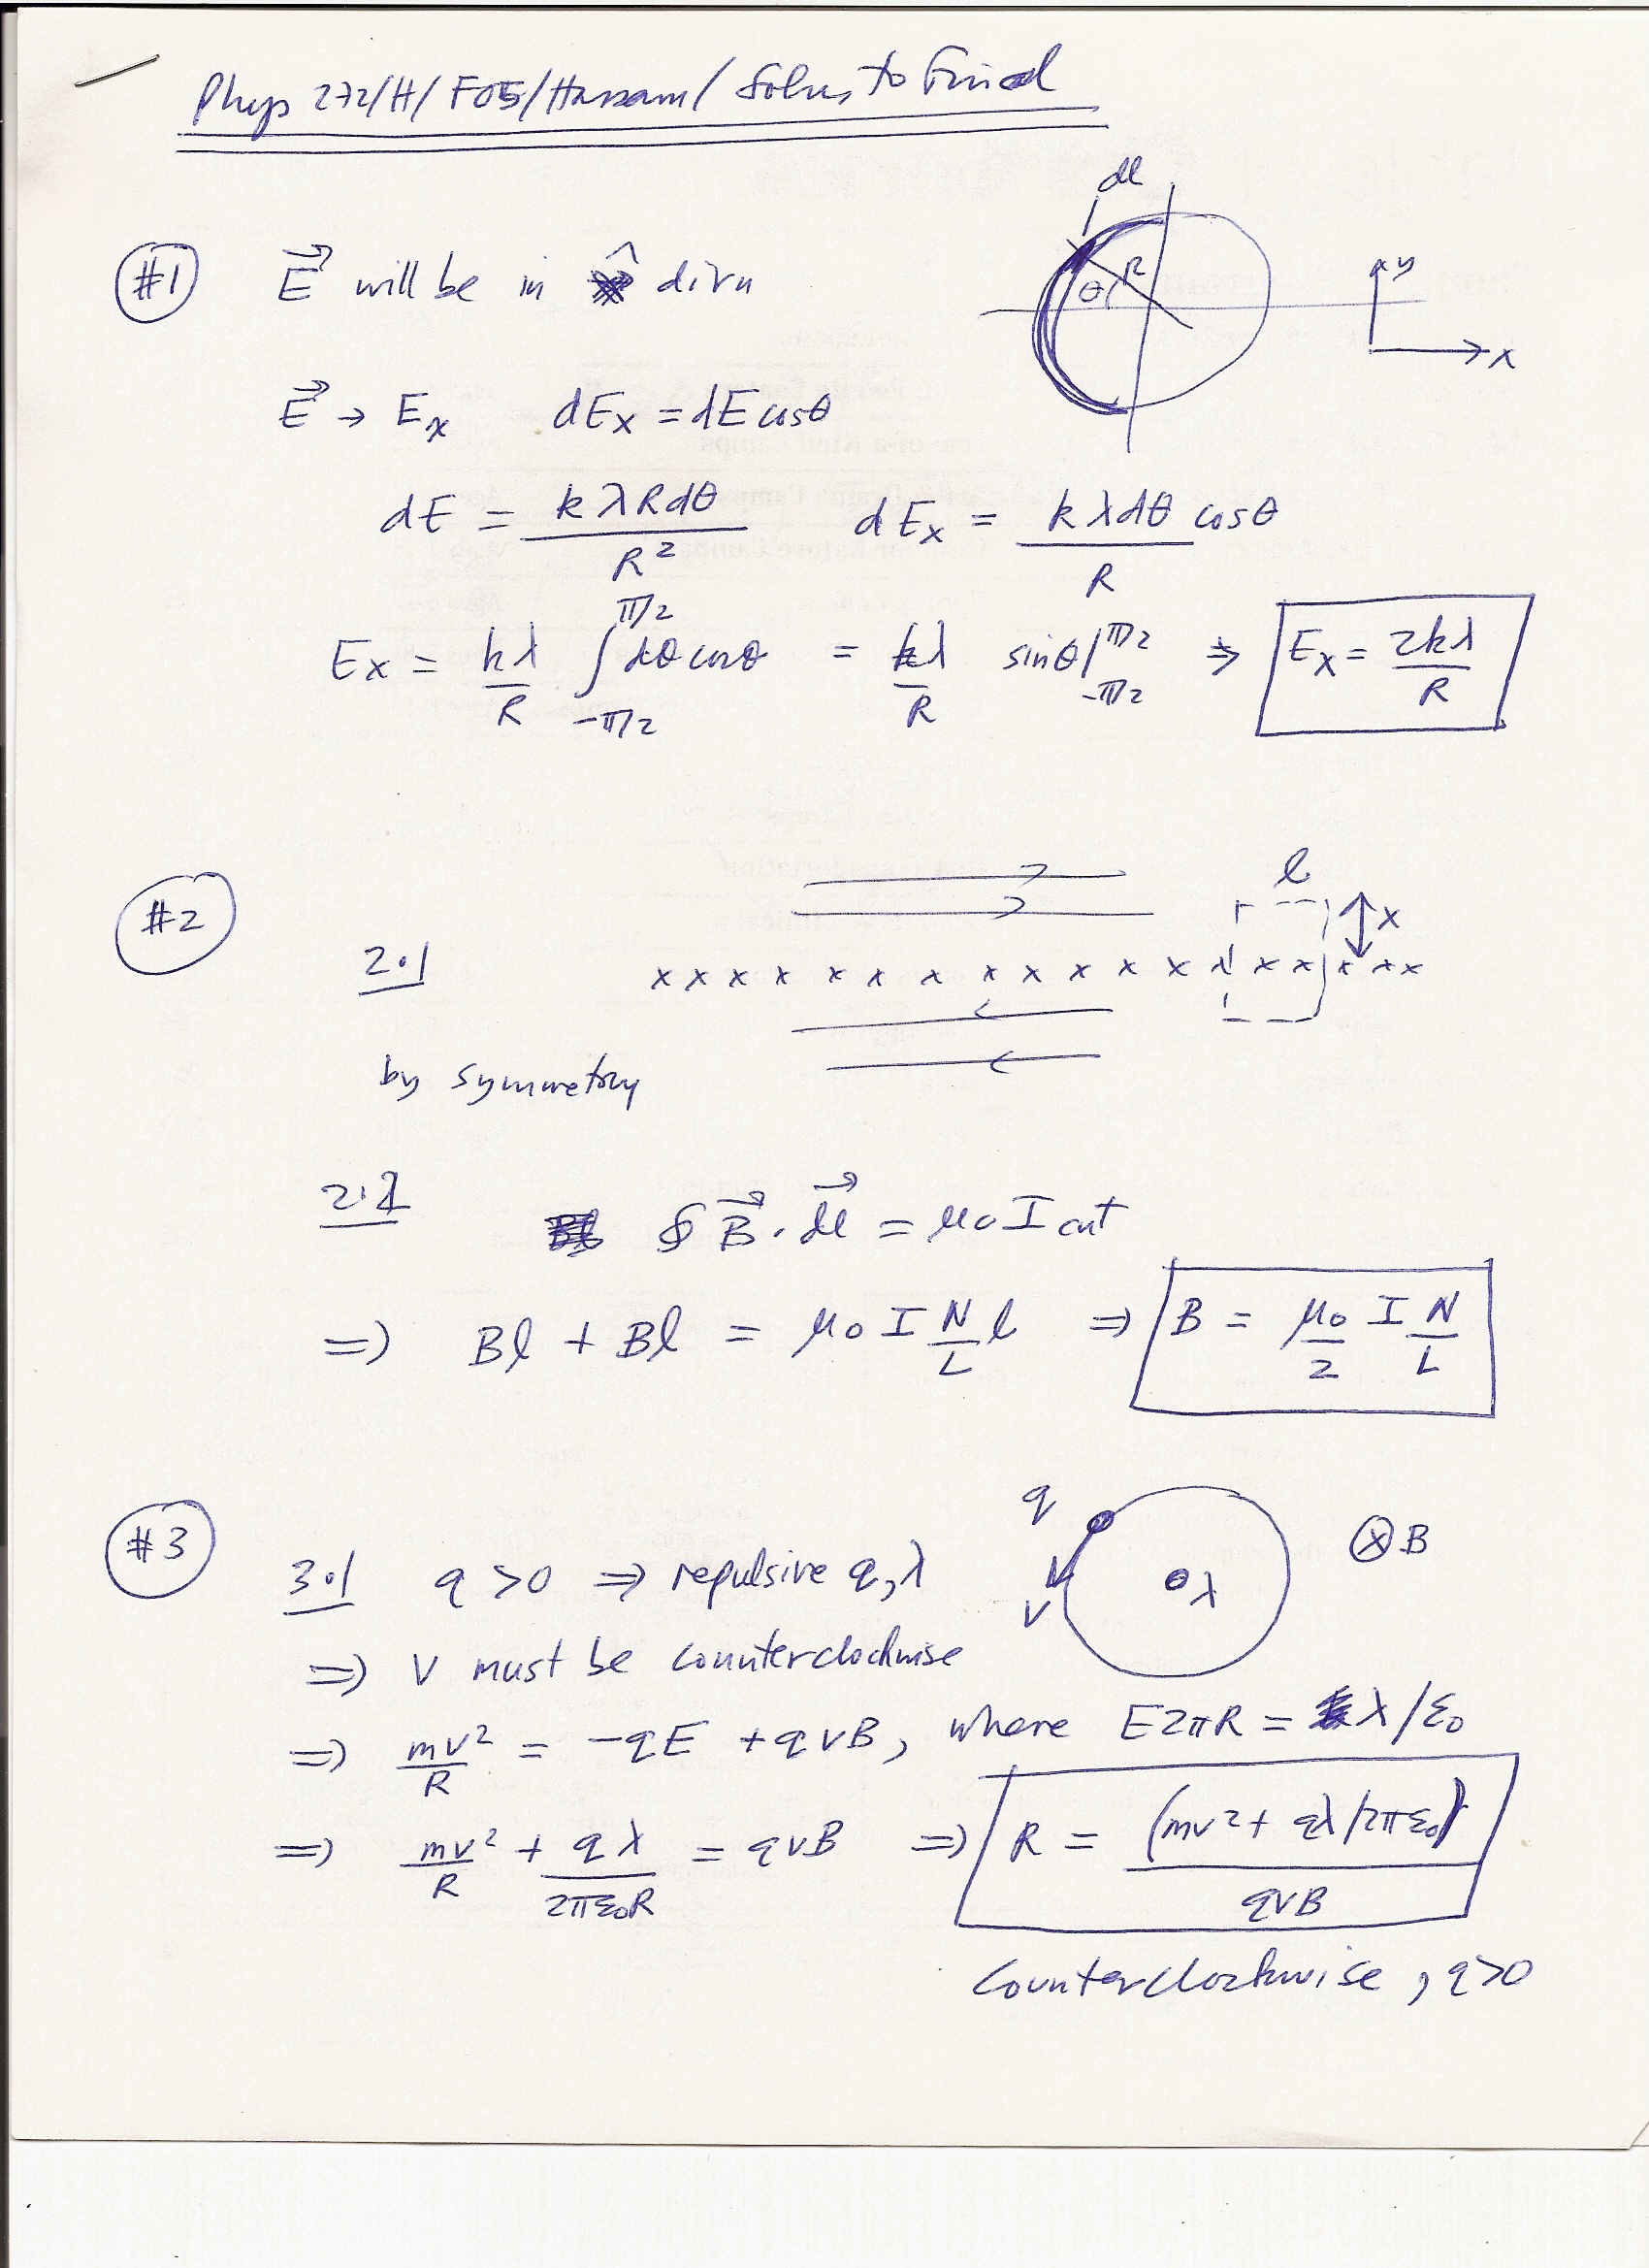 Phys 272/H/F05/Hassam/Solns to Final
dl
#1 E⃗ will be in x̂ dirn
R θ y x
E⃗ → Eₓ dEₓ = dE cosθ
dE = kλRdθ/R² dEₓ = kλdθ/R cosθ
Eₓ = kλ/R ∫_{-π/2}^{π/2} dθ cosθ = kλ/R sinθ|_{-π/2}^{π/2} ⇒ Eₓ = 2kλ/R
#2
l
x
2.1 x x x x x x x x x x x x x x x x x x
by symmetry
2.2 ∮ B⃗ · dl⃗ = μ₀ I cut
⇒ Bl + Bl = μ₀ I N/L l ⇒ B = μ₀/2 I N/L
#3
q ⊗B
3.1 q > 0 ⇒ repulsive q, λ
v λ
⇒ v must be counterclockwise
⇒ mv²/R = -qE + qvB, where E2πR = λ/ε₀
⇒ mv²/R + qλ/2πε₀R = qvB ⇒ R = (mv² + qλ/2πε₀)/qvB
counterclockwise, q>0